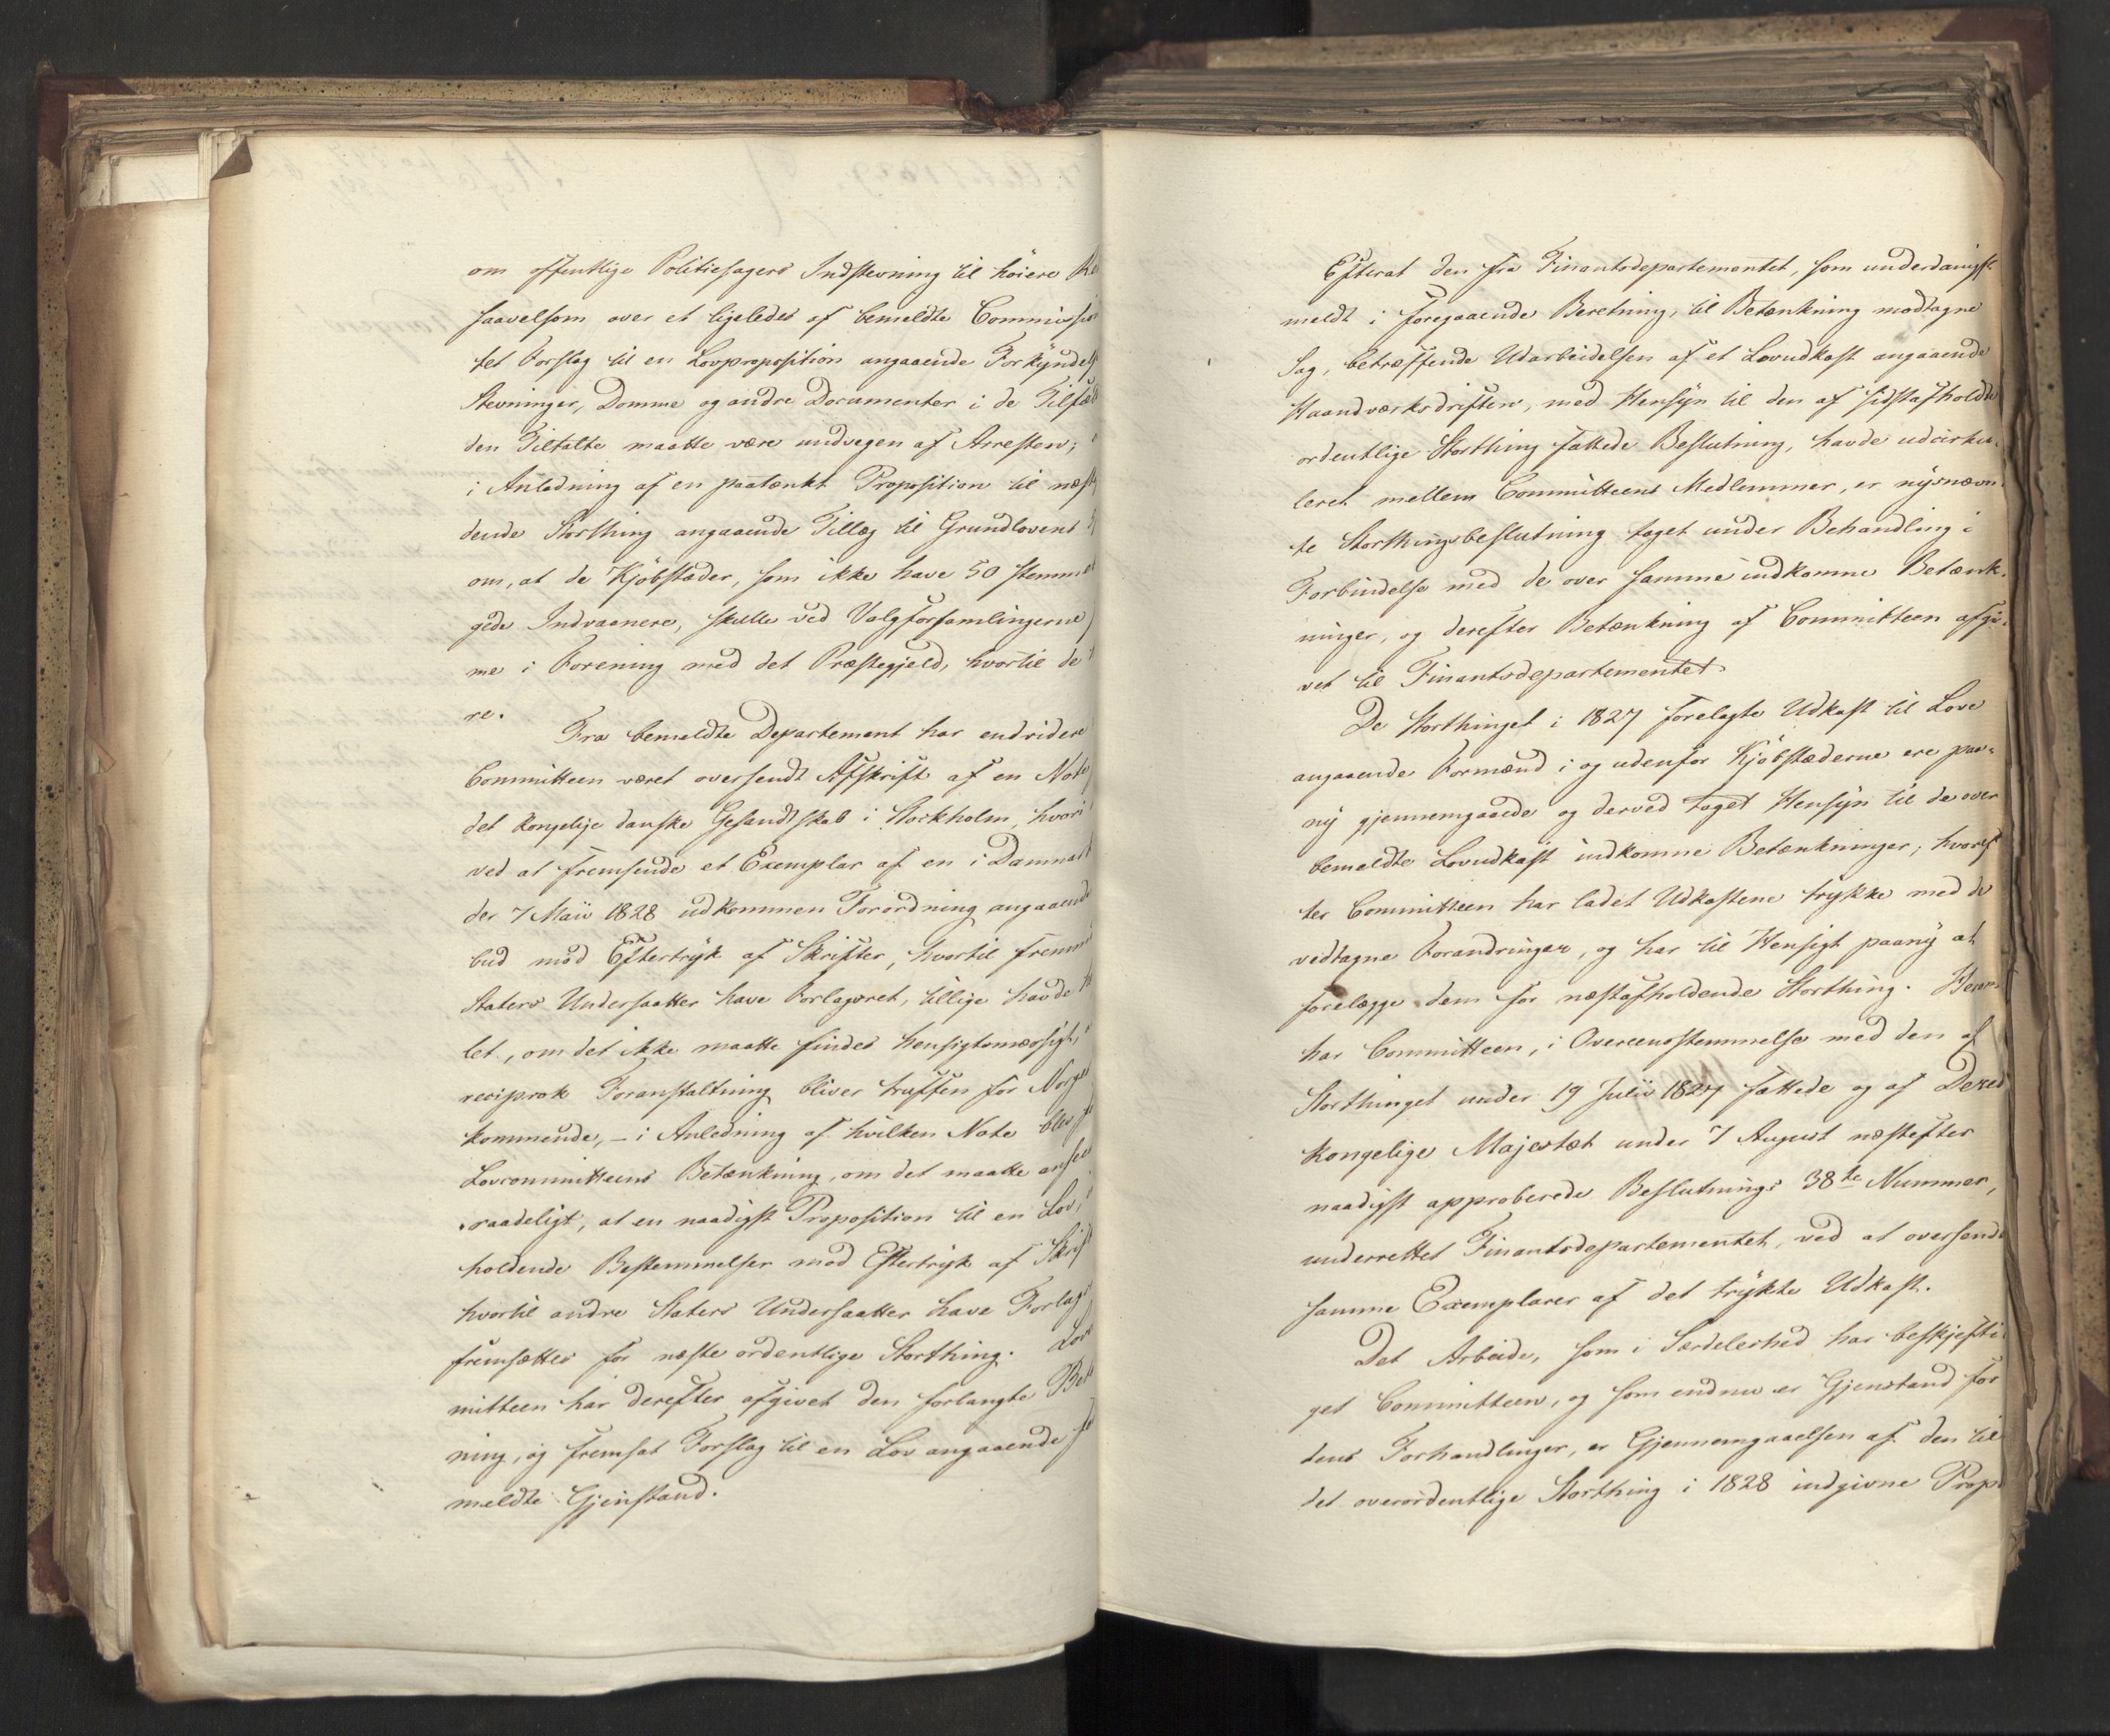 om offentlige Politiesagers Indstevning til höiere Re
saavelsom over et ligeledes af bemeldte Commission
tet Forslag til en Lovproposition angaaende Forkyndels
Stevninger, Domme og andre Documenter i de Tilfæld
den Tiltalte maatte være undvegen af Arresten;
i Anledning af en paatænkt Proposition til næst
dende Storthing angaaende Tillæg til Grundlovens §
om, at de Kjöbstæder, som ikke have 50 stemme
gede Indvaanere, skulle ved Valgforsamlingerne
me i Forening med det Præstegjeld, hvortil de
re.
Fra bemeldte Departement har endvidere
Committeen været oversendt Afskrift af en Note
det kongelige danske Gesandtskab i Stockholm, hvori
ved at fremsende et Exemplar af en i Danmark
der 7 Maii 1828 udkommen Forordning angaaende
bud mod Eftertryk af Skrifter, hvortil fremme
Staters Undersaatter have Forlagsret, tillige havde
let, om det ikke maatte findes hensigtsmæssigt,
reciprok Foranstaltning bliver truffen for Norges
kommende, – i Anledning af hvilken Note blev
Lovcommitteens Betænkning, om det maatte ansees
raadeligt, at en naadigst Proposition til en Lov,
holdende Bestemmelser mod Eftertryk af Skrift
hvortil andre Staters Undersaatter have Forlags
fremsættes for næste ordentlige Storthing. Lov
mitteen har derefter afgivet den forlangte Bet
ning, og fremsat Forslag til en Lov angaaende
meldte Gjenstand.
Efterat den fra Finantsdepartementet, som underdanigst
meldt i foregaaende Beretning, til Betænkning modtagne
Sag, betræffende Udarbeidelsen af et Lovudkast angaaende
Haandværksdriften, med Hensyn til den af sidstafholdte
ordentlige Storthing fattede Beslutning, havde udcirku-
leret mellem Committeens Medlemmer, er nysnævn-
te Storthingsbeslutning taget under Behandling i
Forbindelse med de over samme indkomne Betænk-
ninger, og derefter Betænkning af Committeen afgi-
vet til Finantsdepartementet.
De Storthinget i 1827 forelagte Udkast til Love
angaaende Formænd i og udenfor Kjöbstæderne ere paa-
ny gjennemgaaede og derved taget Hensyn til de over
bemeldte Lovudkast indkomne Betænkninger; hvoref
ter Committeen har ladet Udkastene trykke med de
vedtagne Forandringer, og har til Hensigt paany at
forelægge dem for næstafholdende Storthing. Herom
har Committeen, i Overeensstemmelse med den af
Storthinget under 19 Julii 1827 fattede og af Deres
Kongelige Majestæt under 7 August næstefter
naadigst approberede Beslutnings 38te Nummer,
underrettet Finantsdepartementet, ved at oversende
samme Exemplarer af det trykte Udkast.
Det Arbeide, som i Særdeleshed har beskjefti-
get Committeen, og som endnu er Gjenstand for
dens Forhandlinger, er Gjennemgaaelsen af den til
det overordentlige Storthing i 1828 indgivne Propo